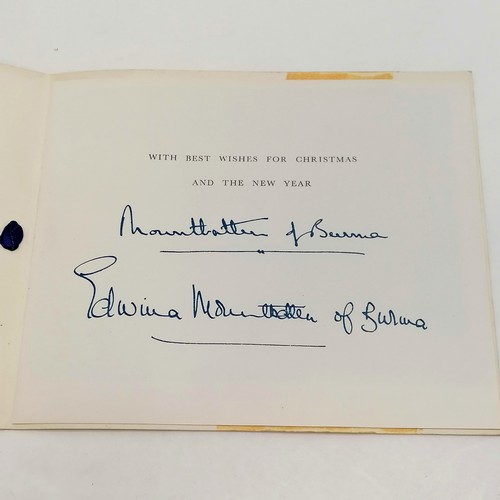 WITH BEST WISHES FOR CHRISTMAS
AND THE NEW YEAR
Mountbatten of Burma
Edwina Mountbatten of Burma